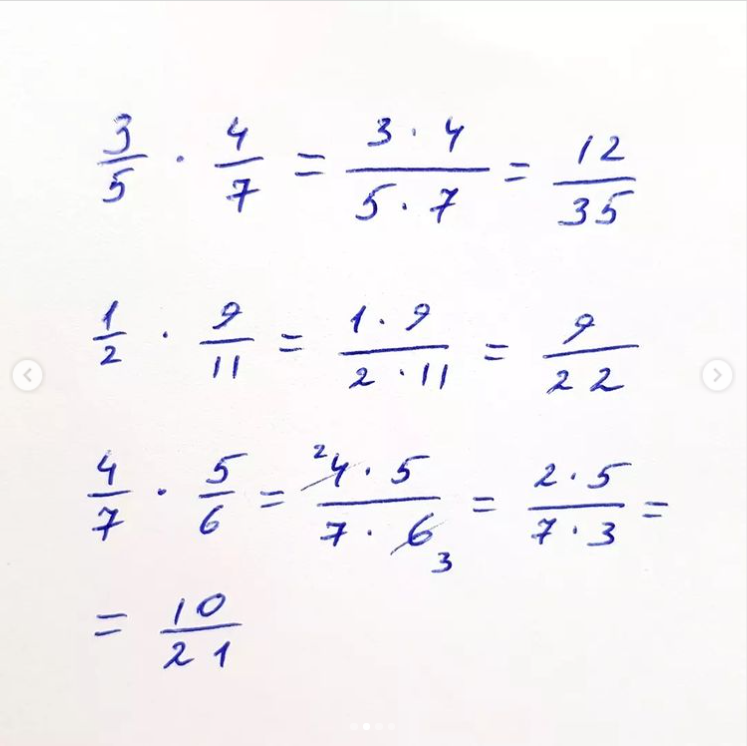 3/5 · 4/7 = (3 · 4)/(5 · 7) = 12/35
1/2 · 9/11 = (1 · 9)/(2 · 11) = 9/22
4/7 · 5/6 = (²4̸ · 5)/(7 · 6̸₃) = (2 · 5)/(7 · 3) =
= 10/21